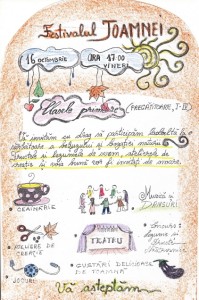 Festivalul TOAMNEI
16 octombrie ORA 17.00
VINERI
Clasele primare (PREGĂTITOARE, I-II)
Vă invităm cu drag să participăm laolaltă la
sărbătoarea a belșugului și bogăției naturii.
Fructele și legumele de sezon, atelierele de
creație și voia bună vor fi invitați de onoare.
CEAINĂRIE
Muzică și
DANSURI
TEATRU
ATELIERE DE
CREAȚIE
Concurs:
JOCURI
GUSTĂRI DELICIOASE
DE TOAMNĂ
Vă așteptăm